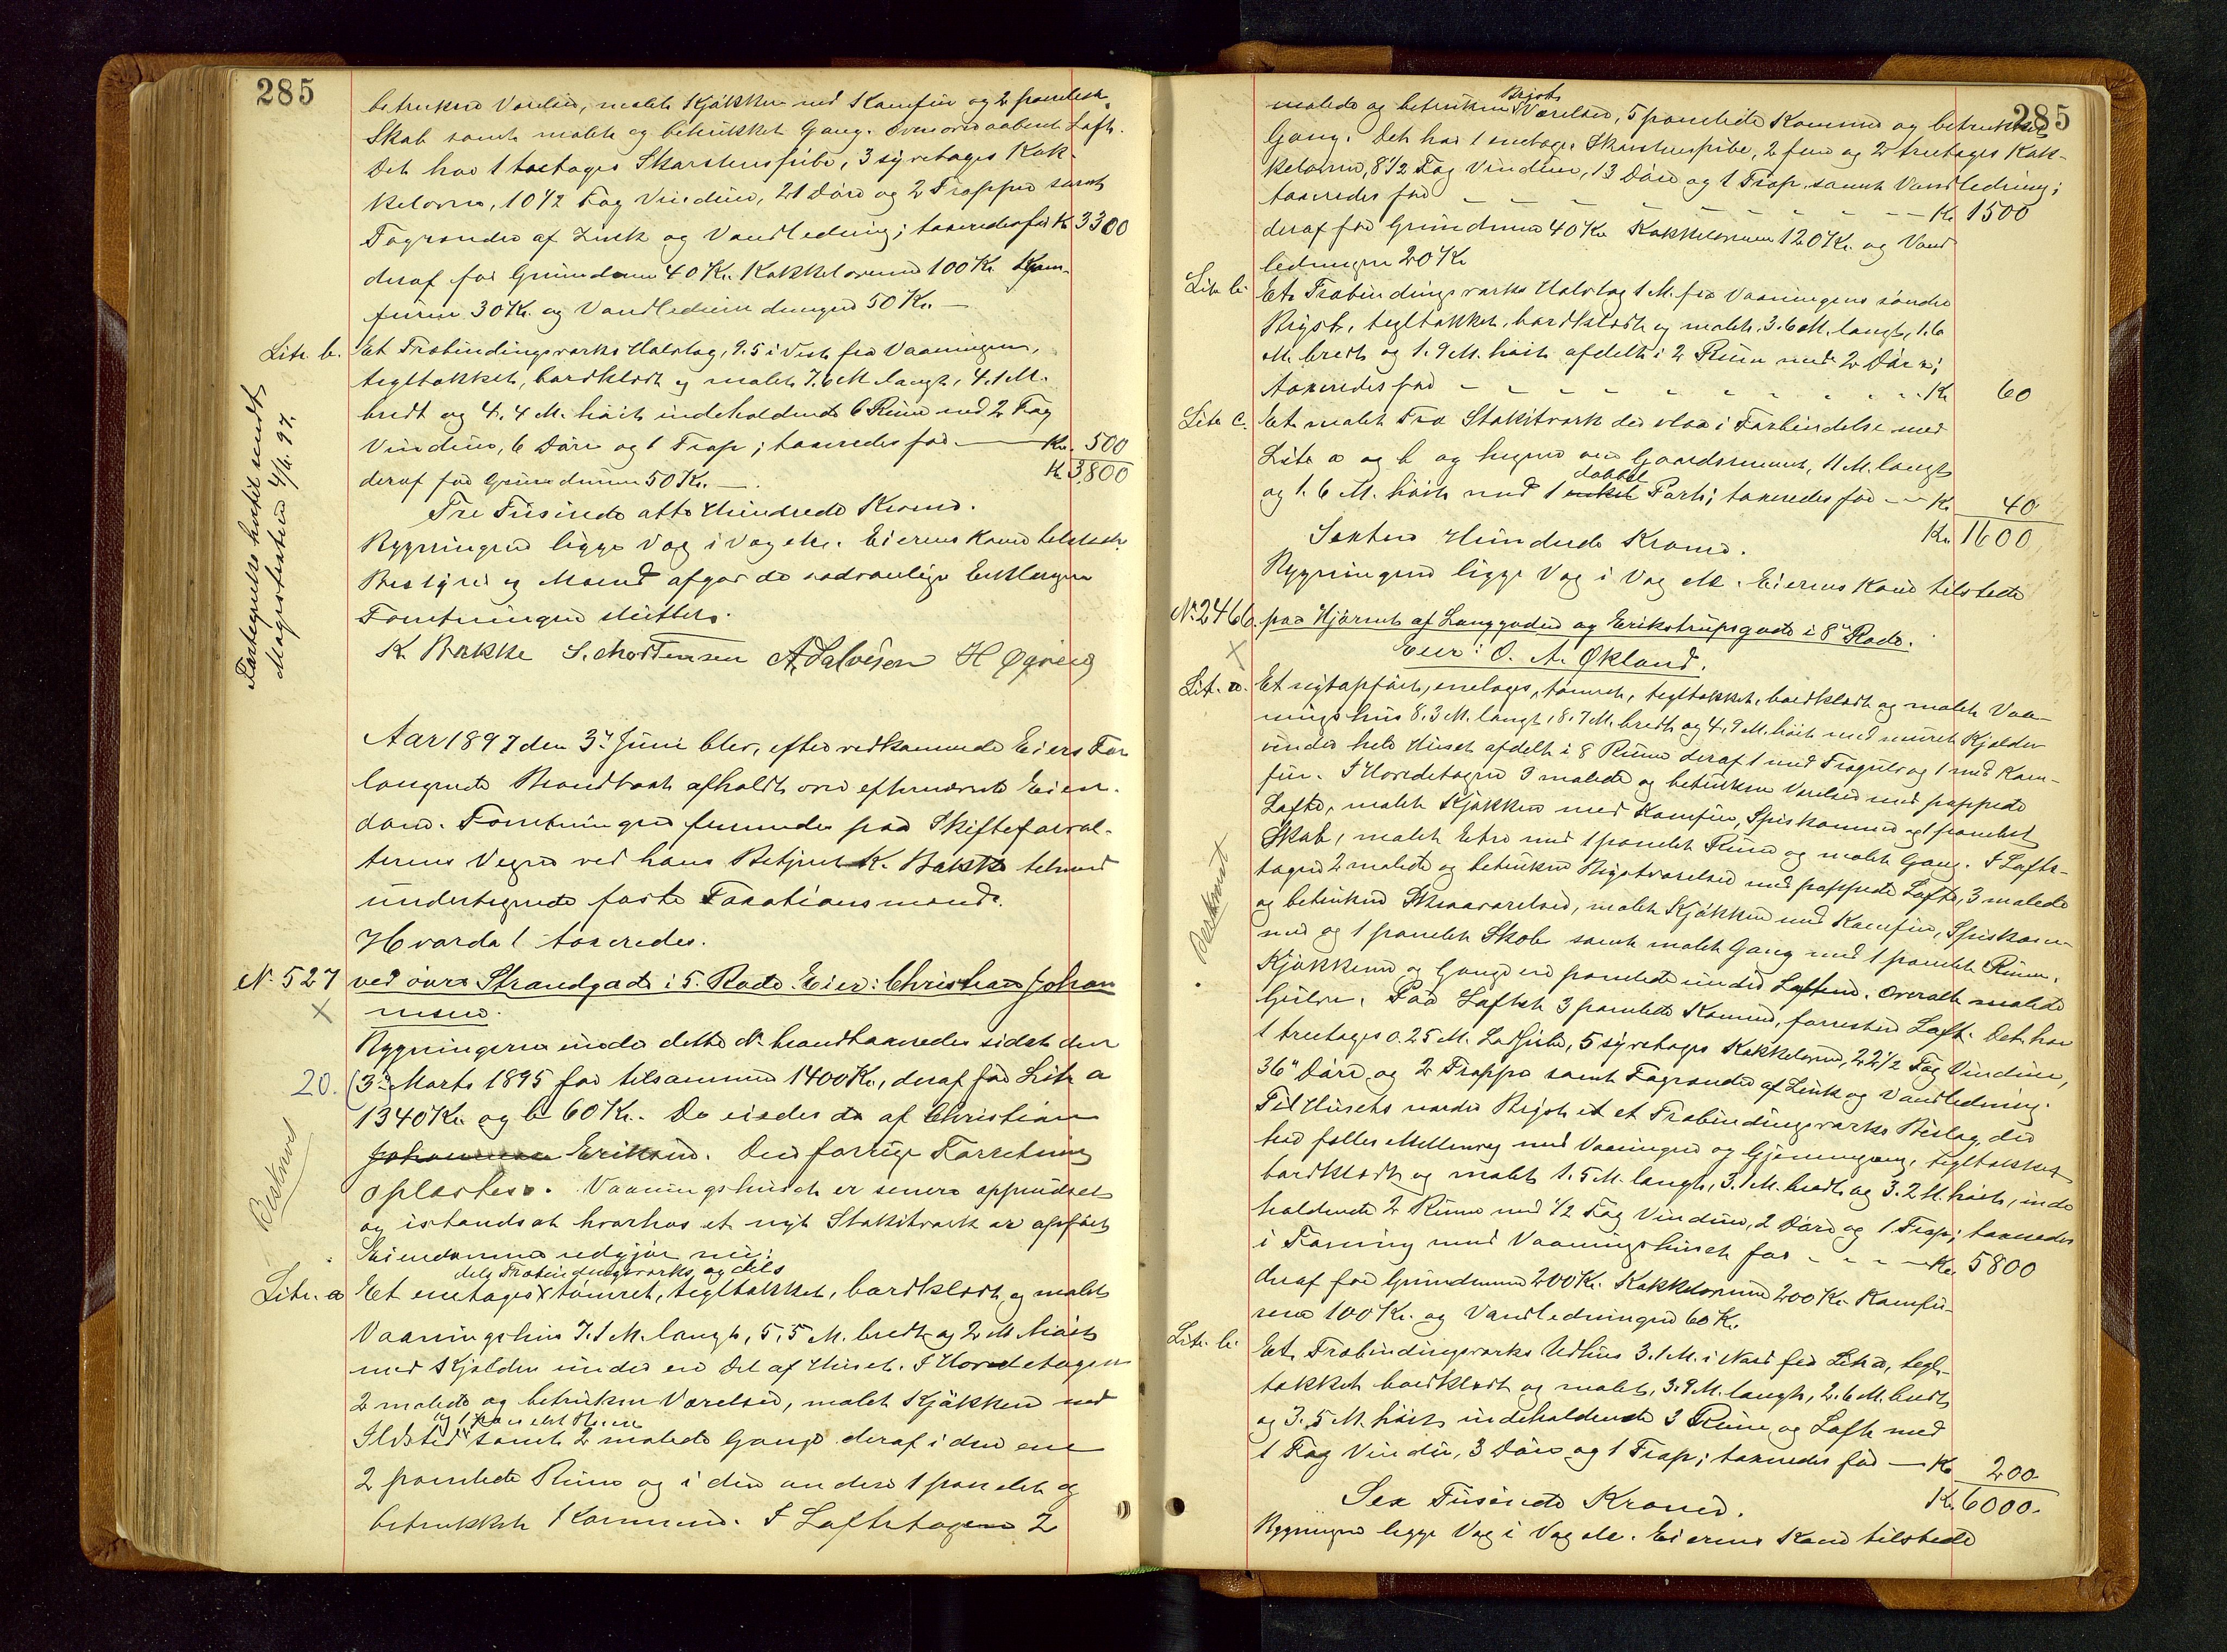 285
betrukne Værelser, malet Kjøkken med Komfur og 2 panelede
Skab samt malet og betrukket Gang. Ovenover aabent Loft.
Det har 1 toetages Skorstenspibe, 3 syvetages Kak-
kelovne, 10 1/2 Fag Vinduer, 21 Døre og 2 Trapper samt
Tagrender af Zink og Vandledning; taxeredes for Kr 3300
deraf for Grundmuren 40 Kr. Kakkelovnene 100 Kr. Kom-
furen 30 Kr. og Vandledningen 50 Kr. —
Litr. b. Et Træbindingsværks Halvtag, 9.5 i Vest fra Vaaningen,
tegltækket, bordklædt og malet 7.6 M. langt, 4.1 M.
bredt og 4.4 M. høit indeholdende 6 Rum med 2 Fag
Vinduer, 6 Døre og 1 Trap; taxeredes for — Kr. 500
deraf for Grundmuren 50 Kr. — Kr. 3,800
Tre Tusinde otte Hundrede Kroner.
Bygningerne ligge Væg i Væg etc. Eierens Kone tilstede.
Bestyrer og Mænd afgav de sædvanlige Erklæringer
Forretningen sluttet.
K Bakke S. Mortensen A Salvesen H Øgreid
Fortegnelse hertil sendt
Magistraten 4/6. 97.
Aar 1897 den 3die Juni blev, efter vedkommende Eiers For
langende Brandtaxt afholdt over efternævnte Eien-
dom. Forretningen fremmedes paa Skifteforval-
terens Vegne ved hans Betjent K. Bakke tilmed
undertegnede faste Taxationsmænd.
Hvorda! taxeredes.
No. 527 ved øvre Strandgade i 5. Rode. Eier: Christian Johan
nesen.
Bygningerne under dette No. brandtaxeredes sidst den
20. (3die Marts 1895 for tilsammen 1400 Kr., deraf for Litr a
1340 Kr. og b 60 Kr. De eiedes da af Christian
Johannesen Eriksen. Den forrige Forretning
oplæstes. Vaaningshuset er senere oppudset
og istandsat hvorhos et nyt Stakitværk er opført
Eiendommen udgjør nu:
Beskrevet
dels Træbindingsværks og dels
Litr. a Et enetages tømret, tegltækket, bordklædt og malet
Vaaningshus 7.1 M. langt, 5.5 M. bredt og 2 M høit
med Kjelder under en Del af Huset. I Hovedetagen
2 malede og betrukne Værelser, malet Kjøkken med
og 1 panelet Rum
Ildsted samt 2 malede Gange deraf i den ene
2 panelede Rum og i den anden 1 panelet og
betrukket Kammer. I Loftetagen 2
285
Kvist
malede og betrukne Værelser, 5 panelede Kammer og betrukket
Gang. Det har 1 enetages Skorstenspibe, 2 fem og 2 treetages Kak-
kelovne, 8 1/2 Fag Vinduer, 13 Døre og 1 Trap samt Vandledning;
taxeredes for — Kr 1500
deraf for Grundmuren 40 Kr. Kakkelovnene 120 Kr. og Vand
ledningen 20 Kr
Litr b. Et Træbindingsværks Halvtag 1 M. fra Vaaningens søndre
Bryst, tegltækket, bordklædt og malet. 3.6 M. langt, 1.6
M. bredt og 1.9 M. høit afdelt i 2 Rum med 2 Døre;
taxeredes for — Kr. 60
Litr C. Et malet Træ Stakitværk der staar i Forbindelse med
Litr a og b og hegner om Gaardsrummet, 11 M. langt
dobbel
og 1.6 M. høit med 1 enkel Port; taxeredes for — Kr. 40
Kr. 1600
Sexten Hundrede Kroner.
Bygningerne ligge Væg i Væg etc. Eierens Kone tilstede
No. 2466. paa Hjørnet af Langgaden og Erikstrupsgade i 8de Rode.
Eier: O. A. Økland.
Litr. a. Et nyopført, enetages, tømret, tegltækket, bordklædt og malet Vaa-
ningshus 8.3 M. langt, 8.7 M. bredt og 4.9 M. høit med muret Kjelder
under hele Huset afdelt i 8 Rum deraf 1 med Trægulv og 1 med Kom-
fur. I Hovedetagen 3 malede og betrukne Værelser med pappede
Lofte, malet Kjøkken med Komfur, Spiskammer og 1 panelet
Skab, malet Entre med 1 panelet Rum og malet Gang. I Lofts-
tagen 2 malede og betrukne Kvistværelser med pappede Lofte, 3 malede
og betrukne Skraaværelser, malet Kjøkken med Komfur, Spiskam-
mer og 1 panelet Skab samt malet Gang med 1 panelet Rum.
Beskrevet
Kjøkkener og Gange er panelede under Loftene. Overalt malede
Gulve. Paa Loftet 3 panelede Kammer, forresten Loft. Det har
1 treetages 0.25 M. Ladpibe, 5 syvetages Kakkelovne, 22 1/2 Fag Vinduer,
36 Døre og 2 Trapper samt Tagrender af Zink og Vandledning.
Til Husets nordre Bryst et Træbindingsværks Bislag, der
har fælles Mellemvæg med Vaaningen og Gjennemgang, tegltækket
bordklædt og malet 1.5 M. langt, 3.1 M. bredt og 3.2 M. høit, inde
holdende 2 Rum med 1/2 Fag Vinduer, 2 Døre og 1 Trap; taxeredes
i Forening med Vaaningshuset for — Kr. 5800
deraf for Grundmuren 200 Kr. Kakkelovnene 200 Kr. Komfu-
rene 100 Kr. og Vandledningen 60 Kr.
Litr. b. Et Træbindingsværks Udhus 3.1 M. i Nord fra Litr a, tegl-
tækket bordklædt og malet, 3.9 M. langt, 2.6 M. bredt
og 3.5 M. høit indeholdende 3 Rum og Loft med
1 Fag Vindu, 3 Døre og 1 Trap; taxeredes for — Kr 200
Kr. 6000.
Sex Tusinde Kroner.
Bygningerne ligge Væg i Væg etc. Eierens Kone tilstede